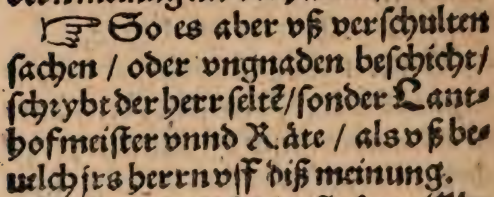 ☞ So es aber vß verschulten
sachen / oder vngnaden beschicht/
schrybt der herr seltẽ/sonder Lant-
hofmeister vnnd Räte / als vß be-
uelch jrs herrn vff diß meinung.